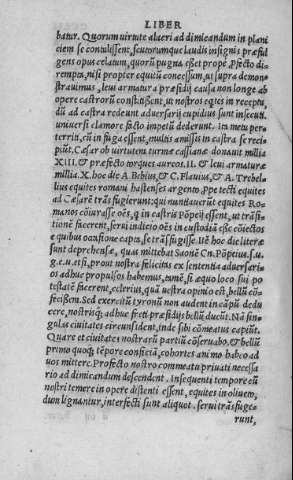 LIBER
batur. Quorum uirtute alueri ad dimicandum in plani
ciem se contulissent, scutorumque laudis insignis præful
gens opus celatum, quorū pugna eßet prope Pfecto di
rempta, nisi propter equitū concessum, ut supra demon
strauimus, leui armatura præsidij causa non longe ab
opere castrorū constitißent, ut nostros eques in receptu,
dū ad castra redeunt aduersarij cupidius sunt insecuti.
uniuersi clamore facto impetū dederunt. In metu per
territi, cū in fuga essent, multis amißis in castra se reci
piūt. Cæsar ob uirtutem turmæ caßianæ donauit millia
XIII. & præfecto torques aureos. II. & leui armaturæ
millia. X. hoc die A. Bebius, & C. Flauius, & A. Trebel
lius equites romani hastenses argento ppe tecti equites
ad Cæsarē trās fugerunt: qui nuntiauerūt equites Ro
manos cōiurasse oēs, q in castris Pōpeij essent, ut trāsi
tionē facerent, serui indicio oēs in custodiā esse cōiectos
e quibus occasione capta, se trāsfugisse. Itē hoc die literæ
sunt deprehensæ, quas mittebat Saonē Cn. Pōpeius. s. u.
g. e. u. et si, prout nostra felicitas ex sententia aduersari
os adhuc propulsos habemus, tamē, si æquo loco sui po
testatē facerent, celerius, quā uestra opinio est, bellū cō
fecißem. Sed exercitū tyronū non audent in cāpū dedu
cere, nostrisq; adhuc freti præsidijs bellū ducūt. Nā sin
gulas ciuitates circunsident, inde sibi cōmeatus capiūt.
Quare et ciuitates nostrarū partiū cōseruabo, & bellū
primo quoq; tēpore conficiā, cohortes animo habeo ad
uos mittere. Profecto nostro commeatu priuati necessa
rio ad dimicandum descendent. Insequenti tempore cū
nostri temere in opere distenti essent, equites in oliueto,
dum lignantur, interfecti sunt aliquot. serui trāsfuge
runt,